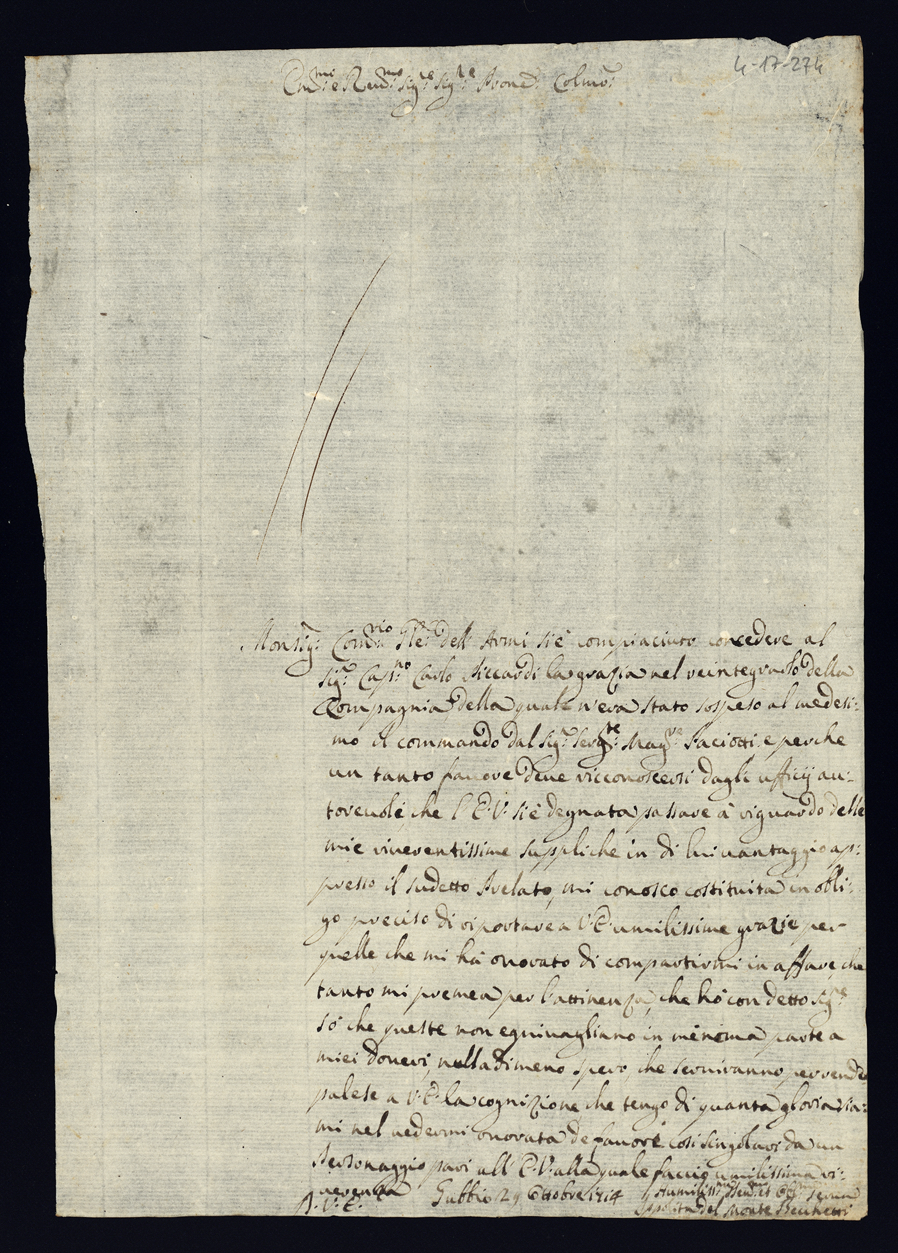 4-17-274
Em.mi e Rev.mo Sig.re Sig.re Prone Colmo:
Monsig.r Com.rio Gle dell Armi si è compiaciuto concedere al
Sig.r Cap.no Carlo Riccardi la grazia nel reintegrarlo della
Compagnia della quale n'era stato sospeso al medesi:
mo il commando dal Sig.r Serg.te Mag.re Paciotti, e perche
un tanto favore deve riconoscersi dagli ufficij au:
torevoli, che l'E.V. si è degnata passare à riguardo delle
mie riverentissime suppliche in di lui vantaggio ap:
presso il sudetto Prelato, mi conosco costituita in obli:
go preciso di riportare a V.E. umilissime grazie per
quelle che mi hà onorato di compartirmi in affare, che
tanto mi premea per l'attinenza, che hò con detto Sig.re
Sò che queste non equivagliano in menoma parte a
miei doveri, nulladimeno spero che serviranno per render
palese a V.E. la cognizione che tengo di quanta gloria sia:
mi nel vedermi onorata de favori così singolari da un
Personaggio pari all E.V. alla quale faccio umilissima ri:
verenza
D. V. E. Gubbio 29 Ottobre 1714
Ippolita del Monte Becchetti